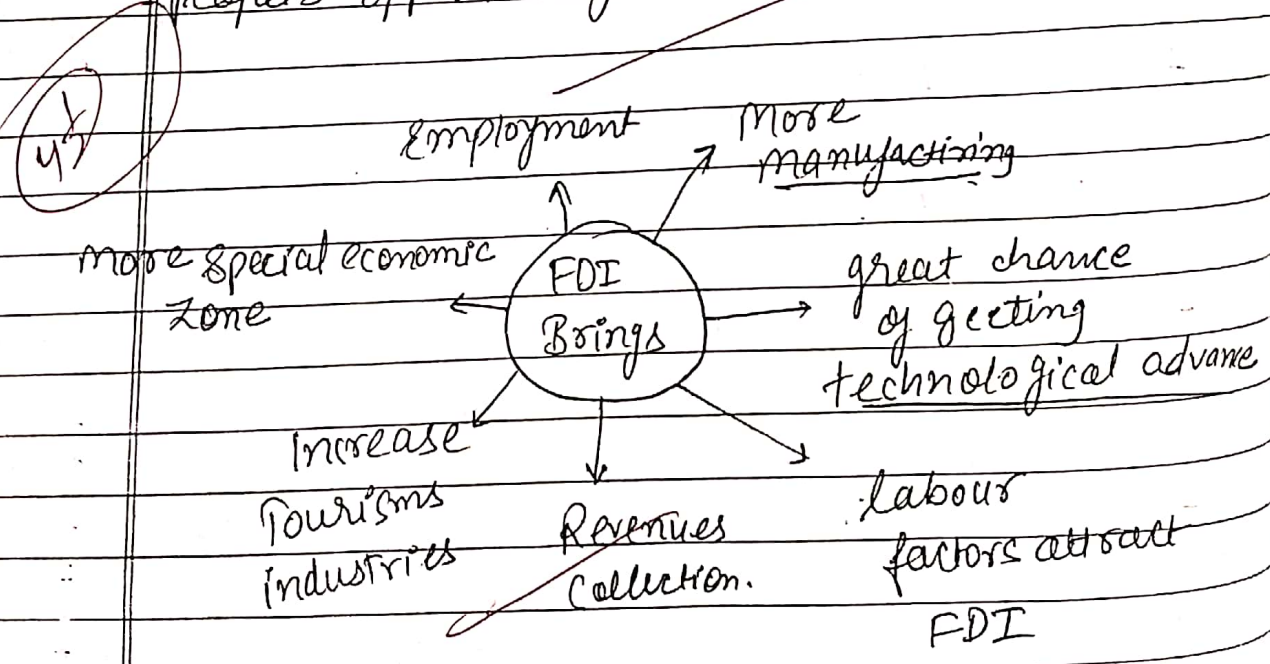 Employment
More
manufactiring
More special economic
Zone
FDI
Brings
great chance
of geeting
technological advance
Increase
Tourisms
industries
Revenues
Collection.
labour
factors attract
FDI